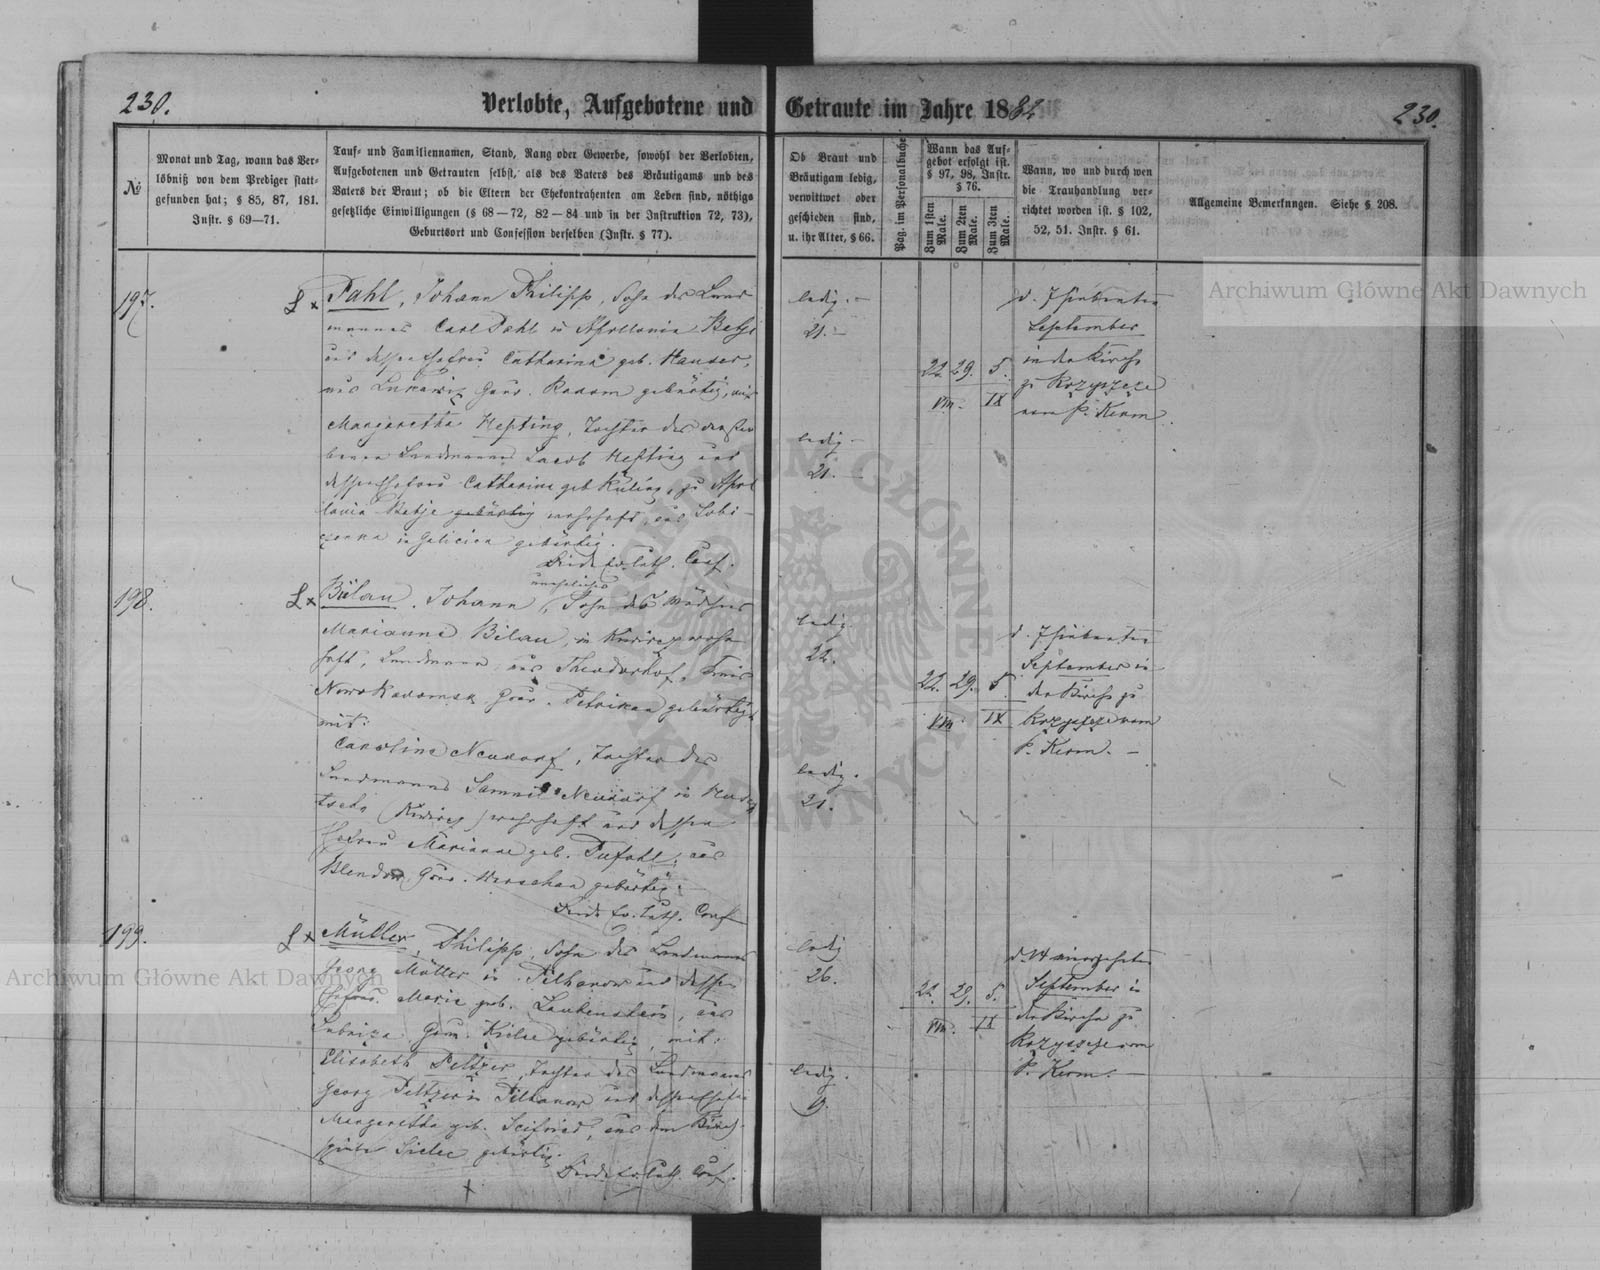 230.
Verlobte, Aufgebotene und Getraute im Jahre 1884
230.
№
Monat und Tag, wann das Ver-
löbniß von dem Prediger statt-
gefunden hat; § 85, 87, 181.
Instr. § 69—71.
Tauf- und Familiennamen, Stand, Rang oder Gewerbe, sowohl der Verlobten,
Aufgebotenen und Getrauten selbst, als des Vaters des Bräutigams und des
Vaters der Braut; ob die Eltern der Ehekontrahenten am Leben sind, nöthige
gesetzliche Einwilligungen (§ 68—72, 82—84 und in der Instruktion 72, 73),
Geburtsort und Confession derselben (Instr. § 77).
Ob Braut und
Bräutigam ledig,
verwittwet oder
geschieden sind,
u. ihr Alter, § 66.
Pag. im Personalbuche
Wann das Auf-
gebot erfolgt ist.
§ 97, 98, Instr.
§ 76.
Zum 1sten Male.
Zum 2ten Male.
Zum 3ten Male.
Wann, wo und durch wen
die Trauhandlung ver-
richtet worden ist. § 102,
52, 51. Instr. § 61.
Allgemeine Bemerkungen. Siehe § 208.
197.
Pahl, Johann Philipp, Sohn des Land
mannes Carl Pahl in Apollonia
und dessen Ehefrau Catharina geb. Hauser,
aus Lukawiz Gouv. Radom gebürtig, mit
Margaretha Hepting, Tochter des verstor
benen Landmannes Jacob Hepting und
dessen Ehefrau Catharine geb. zu Apol
lonia gebürtig wohnhaft, aus
in Galicien gebürtig.
Beide ev. luth. Conf.
ledig.
21.
ledig
21.
22. 29. 5.
VIII. IX
d. 7 siebenten
September
in der Kirche
zu Rozyszcze
vom P. Kerm.
198.
unehelicher
Bülau, Johann, Sohn des Mädchens
Marianne Bilau, in wohn
haft, Landmann, aus Theodorhof, Kreis
Noworadomsk Gouv. Petrikau gebürtig
mit:
Caroline Neudorf, Tochter des
Landmannes Samuel Neudorf in
wohnhaft und dessen
Ehefrau Marianne geb. Pufahl, aus
Blendow, Gouv. Warschau gebürtig.
Beide ev. luth. Conf
ledig.
22.
ledig.
21.
22. 29. 5.
VIII. IX
d. 7 siebenten
September in
der Kirche zu
Rozyszcze vom
P. Kerm.
199.
Müller, Philipp, Sohn des Landmannes
Georg Müller in und dessen
Ehefrau Marie geb. Laubenstein, aus
Gouv. Kielce gebürtig, mit:
Elisabeth Peltzer, Tochter des Landmannes
Georg Peltzer in und dessen Ehefrau
Margaretha geb. Seifried, aus dem Kirch
spiele Sielce gebürtig.
Beide ev. luth. Conf.
ledig
26.
ledig.
19.
22. 29. 5.
VIII. IX
d. 14 vierzehnten
September in
der Kirche zu
Rozyszcze vom
P. Kerm.
Archiwum Główne Akt Dawnych
Archiwum Główne Akt Dawnych
ARCHIWUM GŁÓWNE AKT DAWNYCH